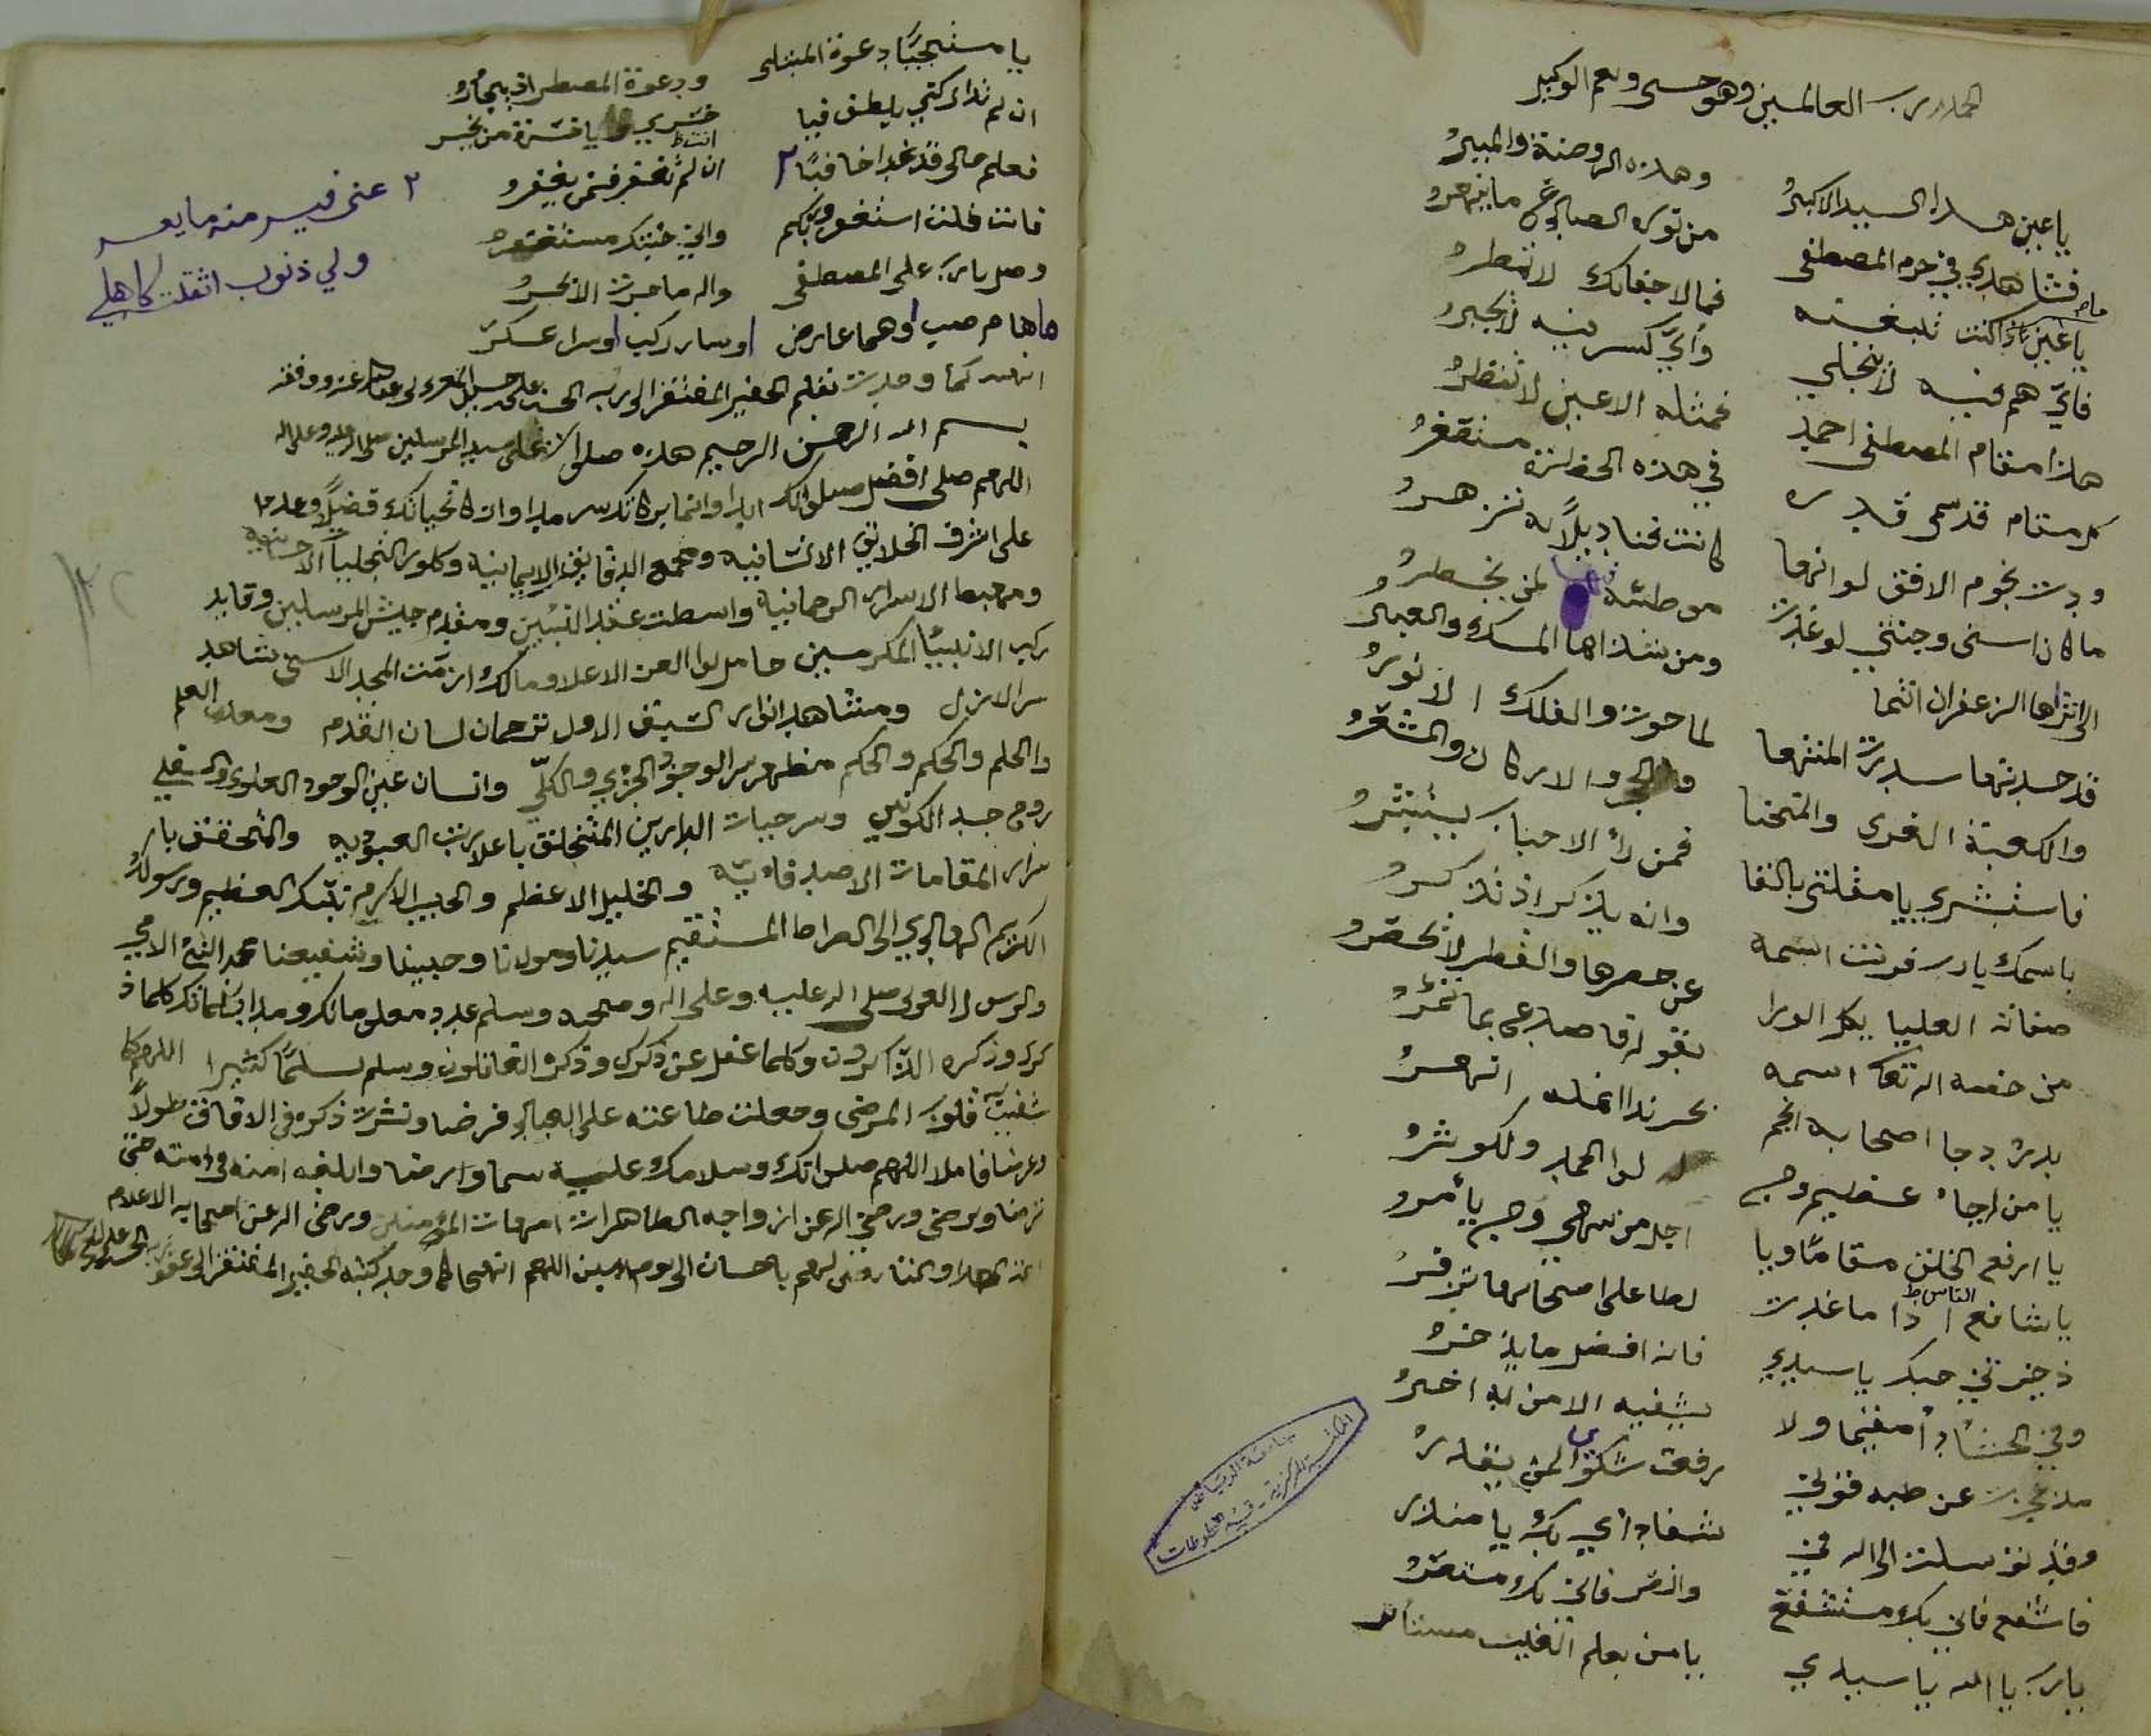 الحمد لله رب العالمين وهو حسبي ونعم الوكيل
يا عين هذا السيد الاكبر وهذه الروضة والمنبر
فشاهدي في حرم المصطفى من نوره
يا عين ما كنت تبغينه فما لاجفانك لا تمطر
فاي هم فيه لا ينجلي واي كسر فيه لا يجبر
هذا مقام المصطفى احمد فمثله الاعين لا تنظر
كم مقام قد سمى قدره في هذه الحضرة مستقغر
ودت نجوم الافق لو انها كانت قناديلا به تزهر
ما كان اسنى وجنتي لو غدت موطئة لمن يخطر
الى ثراها الزعفران انتما ومن شذاها المسك والعنبر
قد حسدتها سدرت المنتها لما حوت والفلك الانور
والكعبة الغرى والمنحنا والحجر والاركان والمشعر
فاستبشري يا مقلتي بالقا فمن راء الاحباب يستبشر
باسمك يا رب قرنت اسمه وانه يذكر اذ تذكر
صفاته العليا بكل الورا عن حصرها والقطر لا تحصر
من خصه الله تعا اسمه بقوله فاصدع بما تؤمر
بدر دجا اصحابه انجم بحر ندا انمله انهر
يا من لجاه عظيم وجب له لوا الحمد والكوثر
يا ارفع الخلق مقاما ويا اجل من ينهي ومن يأمر
يا شافع الناس اذا ما غدت لظا على اصحابها تزفر
ذخيرتي حبك يا سيدي فانه افضل ما يذخر
وفي الحشا داء مقيما ولا يشفيه الا من له اخبر
مذ عجزت عن طبه قولي رفعت شكوى لمن يقدر
وقد توسلت الى الله في شفا دائي بك يا منذر
فاشفع فاني بك مستشفع وانصر فاني بك مستنصر
يا رب يا الله يا سيدي يا من بعلم الغيب مستأثر
يا مستجيبا دعوة المبتلى ودعوة المضطر اذ يجأر
ان لم تداركني بلطف فيا خسري ويا خسرة من يخسر
فعلم حالي قد غدا خافيا ٢ ان لم تغفر فمن يغفر
فانت قلت استغفروا ربكم واني جئتك مستغفر
وصل يا رب على المصطفى واله ما جرت الابحر
ما هام صب او هما عارض او سار ركب او سرا عسكر
٢ عني فيسر منه ما يعسر
ولي ذنوب اثقلت كاهلي
انتهت كما وجدت بقلم الحقير المفتقر الى ربه
بسم الله الرحمن الرحيم هذه صلوات على سيد المرسلين صلى الله عليه وعلى اله
اللهم صلي افضل صلواتك ابدا وانما بركاتك سرمدا وازكا تحياتك فضلا وعددا
على اشرف الخلائق الانسانيه ومجمع الدقايق الايمانيه وطور التجليات الاحسانيه
ومهبط الاسرار الرحمانية واسطت عقد النبين ومقدم جيش المرسلين وقايد
ركب الانبيا المكرمين حامل لوا العز الاعلا ومالك ازمت المجد الاسنى شاهد
سر الازل ومشاهد انوار السبق الاول ترجمان لسان القدم ومعدن العلم
والحلم والحكم والحكم مظهر سر الوجود الجزي والكلي وانسان عين الوجود العلوي والسفلي
روح جسد الكونين وسر حيات الدارين المتخلق باعلا رتب العبوديه والمتحقق بأ
سرار المقامات الاصطفائيه والخليل الاعظم والحبيب الاكرم نبيك العظيم ورسولك
الكريم الهادي الى الصراط المستقيم سيدنا ومولانا وحبيبنا وشفيعنا محمد النبي الامي
والرسول العربي صلى الله عليه وعلى اله وصحبه وسلم عدد معلوماتك ومداد كلماتك كلما ذ
كرك وذكره الذاكرون وكلما غفل عن ذكرك وذكره الغافلون وسلم تسليما كثيرا اللهم كما
شفيت قلوب المرضى وجعلت طاعته على العباد فرضا ونشرت ذكره في الافاق طولا
وعرضا فاملا اللهم صلواتك وسلامك عليه سما وارضا وابلغه امنه في امته حتى
ترضا ويرضى ورضي الله عن ازواجه الطاهرات امهات المؤمنين ورضي الله عن اصحابه الاعلام
والتابعين لهم باحسان الى يوم الدين اللهم انتها كما وجد كتبه الحقير المفتقر الى عفو ربه
جامعة الرياض
المكتبة المركزية - قسم المخطوطات